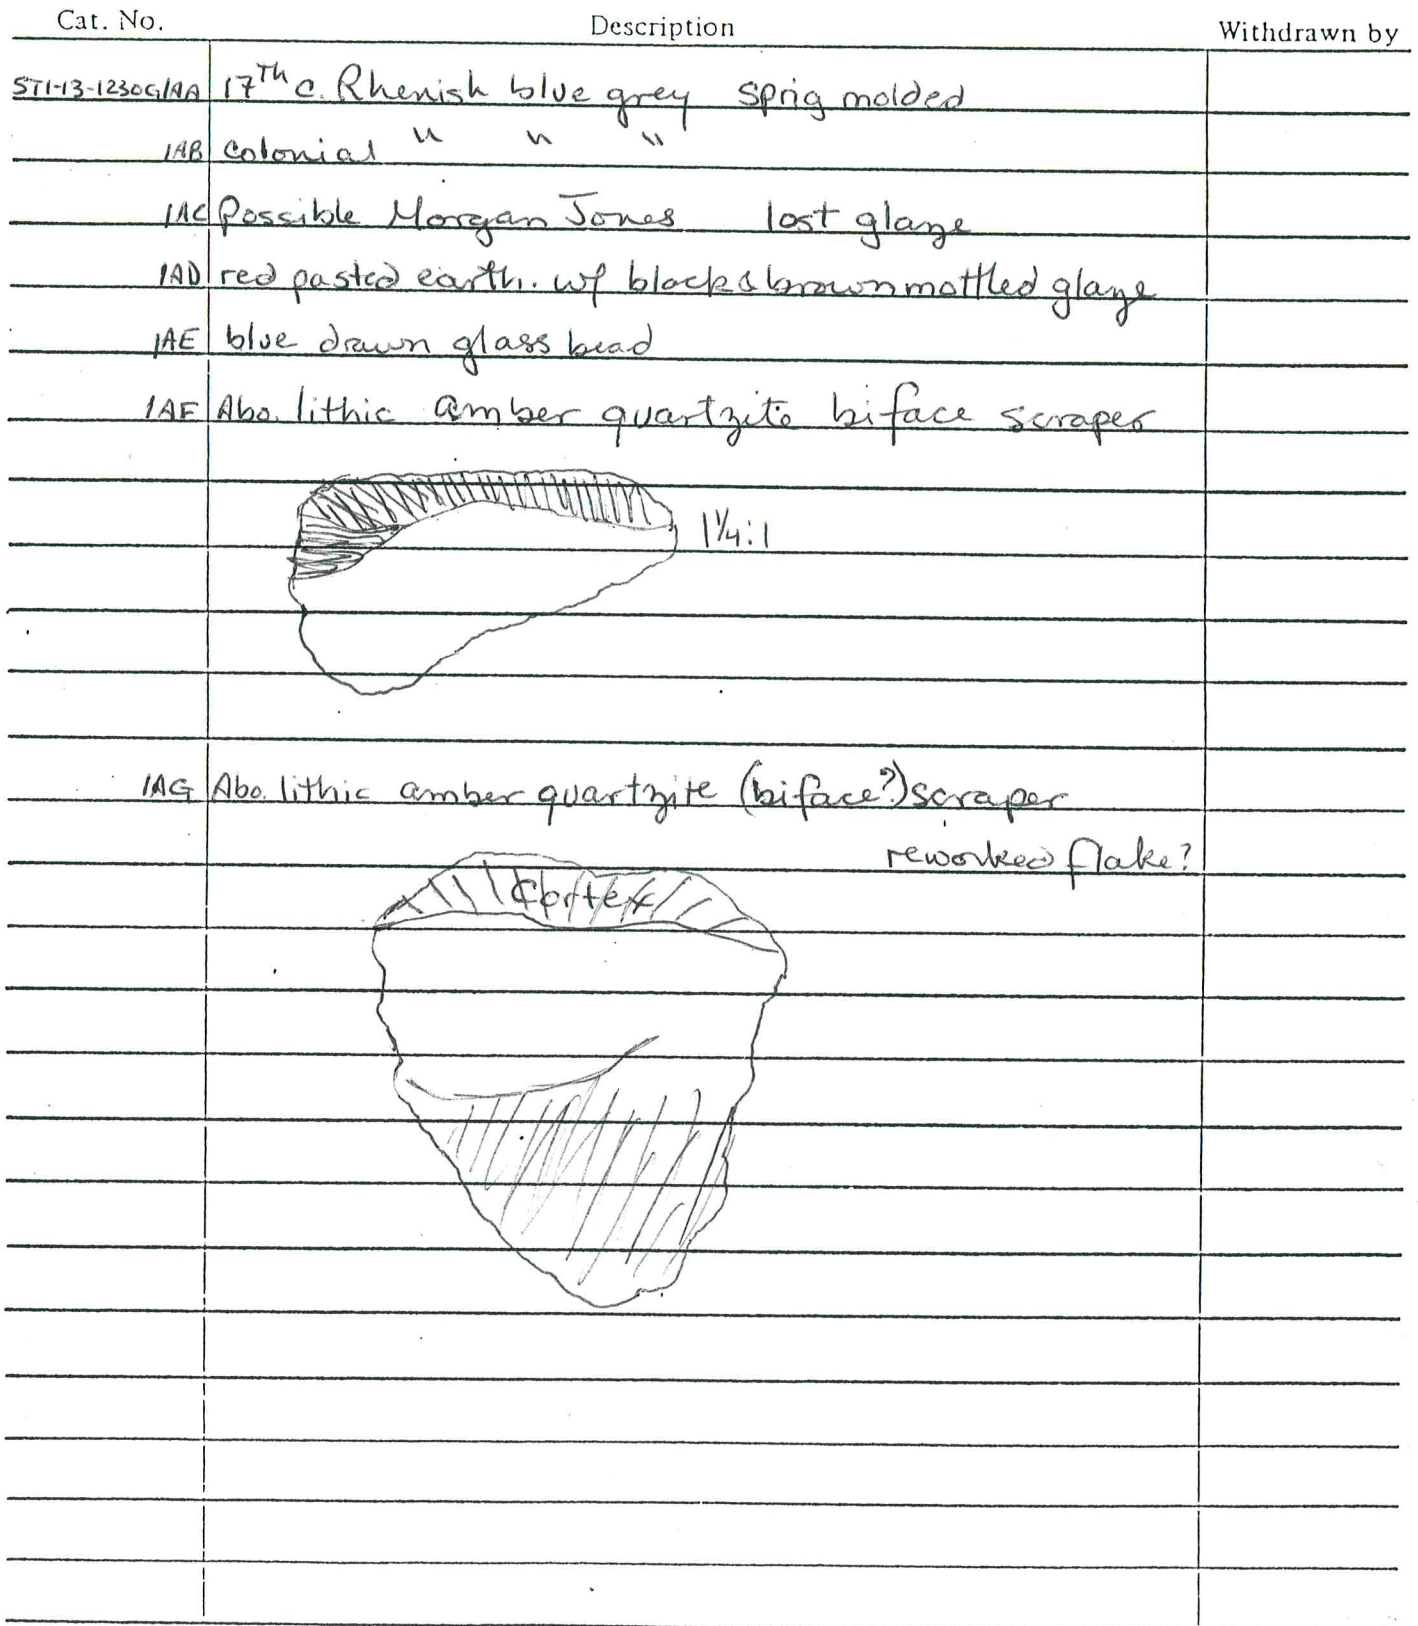 Cat. No. Description Withdrawn by
ST1-13-1230G/AA 17Th c. Rhenish blue grey sprig molded
/AB Colonial " " "
/AC Possible Morgan Jones lost glaze
/AD red pasted earth. w/ black & brown mottled glaze
/AE blue drawn glass bead
/AF Abo. lithic amber quartzite biface scraper
1¼:1
/AG Abo. lithic amber quartzite (biface?) scraper
reworked flake?
Cortex